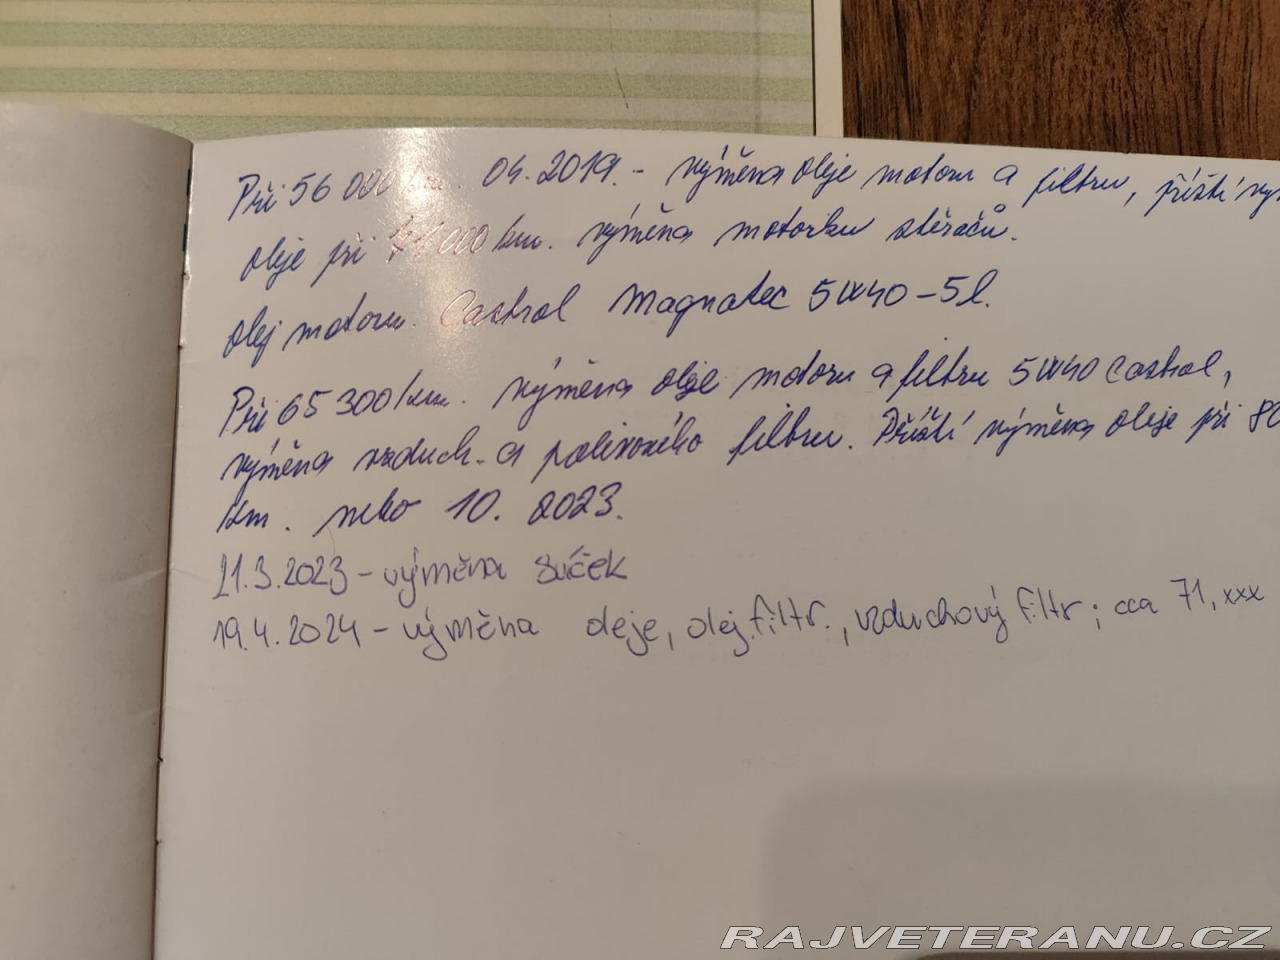 Při 56 000 km. 04.2019. - výměna oleje motoru a filtru, příští vým
oleje při 000 km. výměna motorku stěračů.
olej motoru. Castrol Magnatec 5W40 - 5l.
Při 65 300 km. výměna oleje motoru a filtru 5W40 Castrol,
výměna vzduch. a palivového filtru. Příští výměna oleje při 80
km. nebo 10. 2023.
21.3.2023 - výměna svíček
19.4.2024 - výměna oleje, olej.filtr., vzduchový filtr; cca 71,xxx
RAJVETERANU.CZ